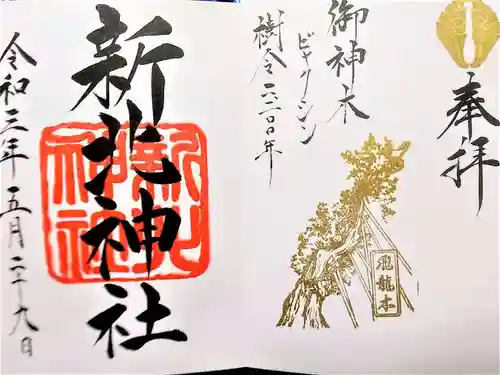 奉拝
御神木
ビャクシン
樹令一三〇〇年
飛龍木
新北神社
令和三年五月二十九日